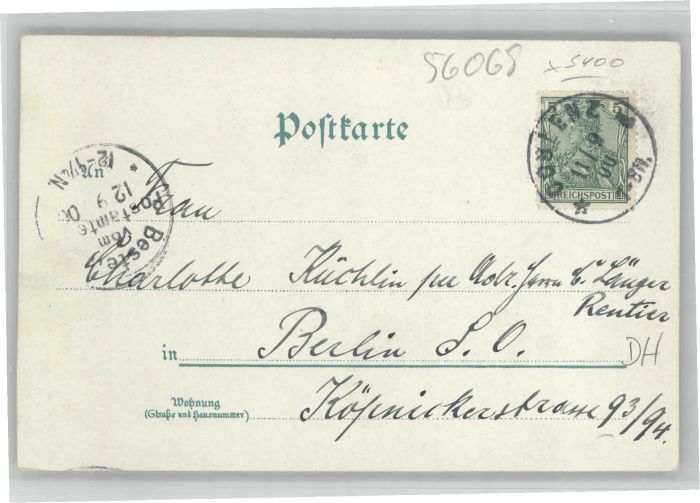 56068 x 5400
Postkarte
5 5
REICHSPOST
COBLENZ
11/9
00
8-9N.
An Frau
12-1½N
12 9 00
Bestellt
vom
Postamte
Charlotte Küchlin per Adr. Herrn C. Länger
Rentier
in Berlin S. O.
DH
Wohnung
(Straße und Hausnummer)
Köpnickerstrasse 93/94.